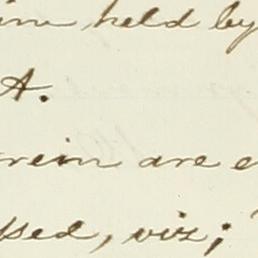 held by
A.
rein are e
ssed, viz;